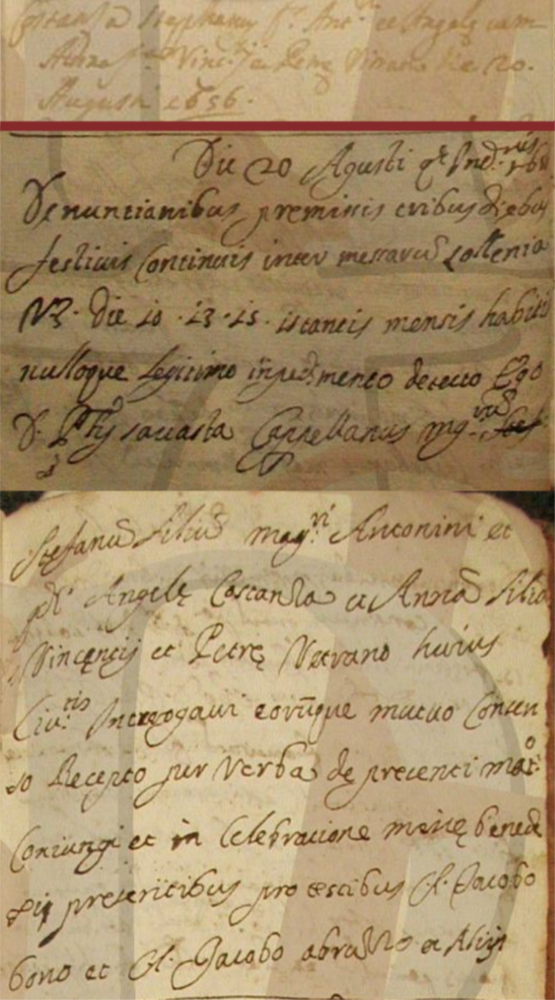 Costanza Stephanus f.s Ant.ni et Angelę cum
Anna f.a Vinc.ij et Petre Vetrano die 20.
Augusti 1656.
Die 20 Agusti 9.e Ind.nis
Denuntianibus premissis tribus diebus
festivis Continuis inter messarū sollenia
Vz. die 10 . 13 . 15 . istantis mensis habitis
nulloque legitimo inpedimento detecto Ego
D. sacrasta Cappellanus
Stefanū filiū mag.ri Antonini et
Angelę Costanza et Annā filia
Vincentij et Petrę Vetrano huius
Civ.tis Interogavi eorūque mutuo Consen
so Recepto per Verba de presenti mat.o
Coniunxi et in Celebratione misse bened
presentibus pro testibus Cl. Jacobo
bono et Cl. Jacobo et Alijs